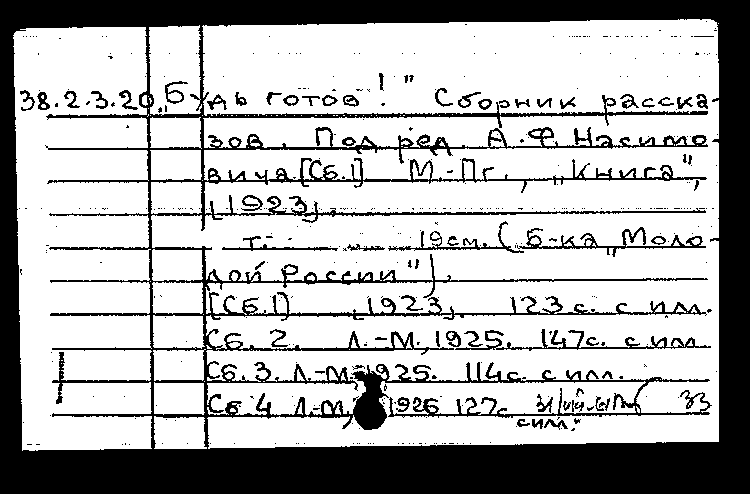 38.2.3.20 „Будь готов!" Сборник расска-
зов. Под ред. А.Ф. Насимо-
вича [Сб.1] М.-Пг., „Книга",
[1923].
т. 19см. (Б-ка „Моло-
дой России").
[Сб.1] [1923]. 123с. с илл.
Сб. 2. Л.-М., 1925. 147с. с илл
Сб. 3. Л.-М. 1925. 114с. с илл.
Сб 4 Л.-М, 1926 127с 33
с илл.